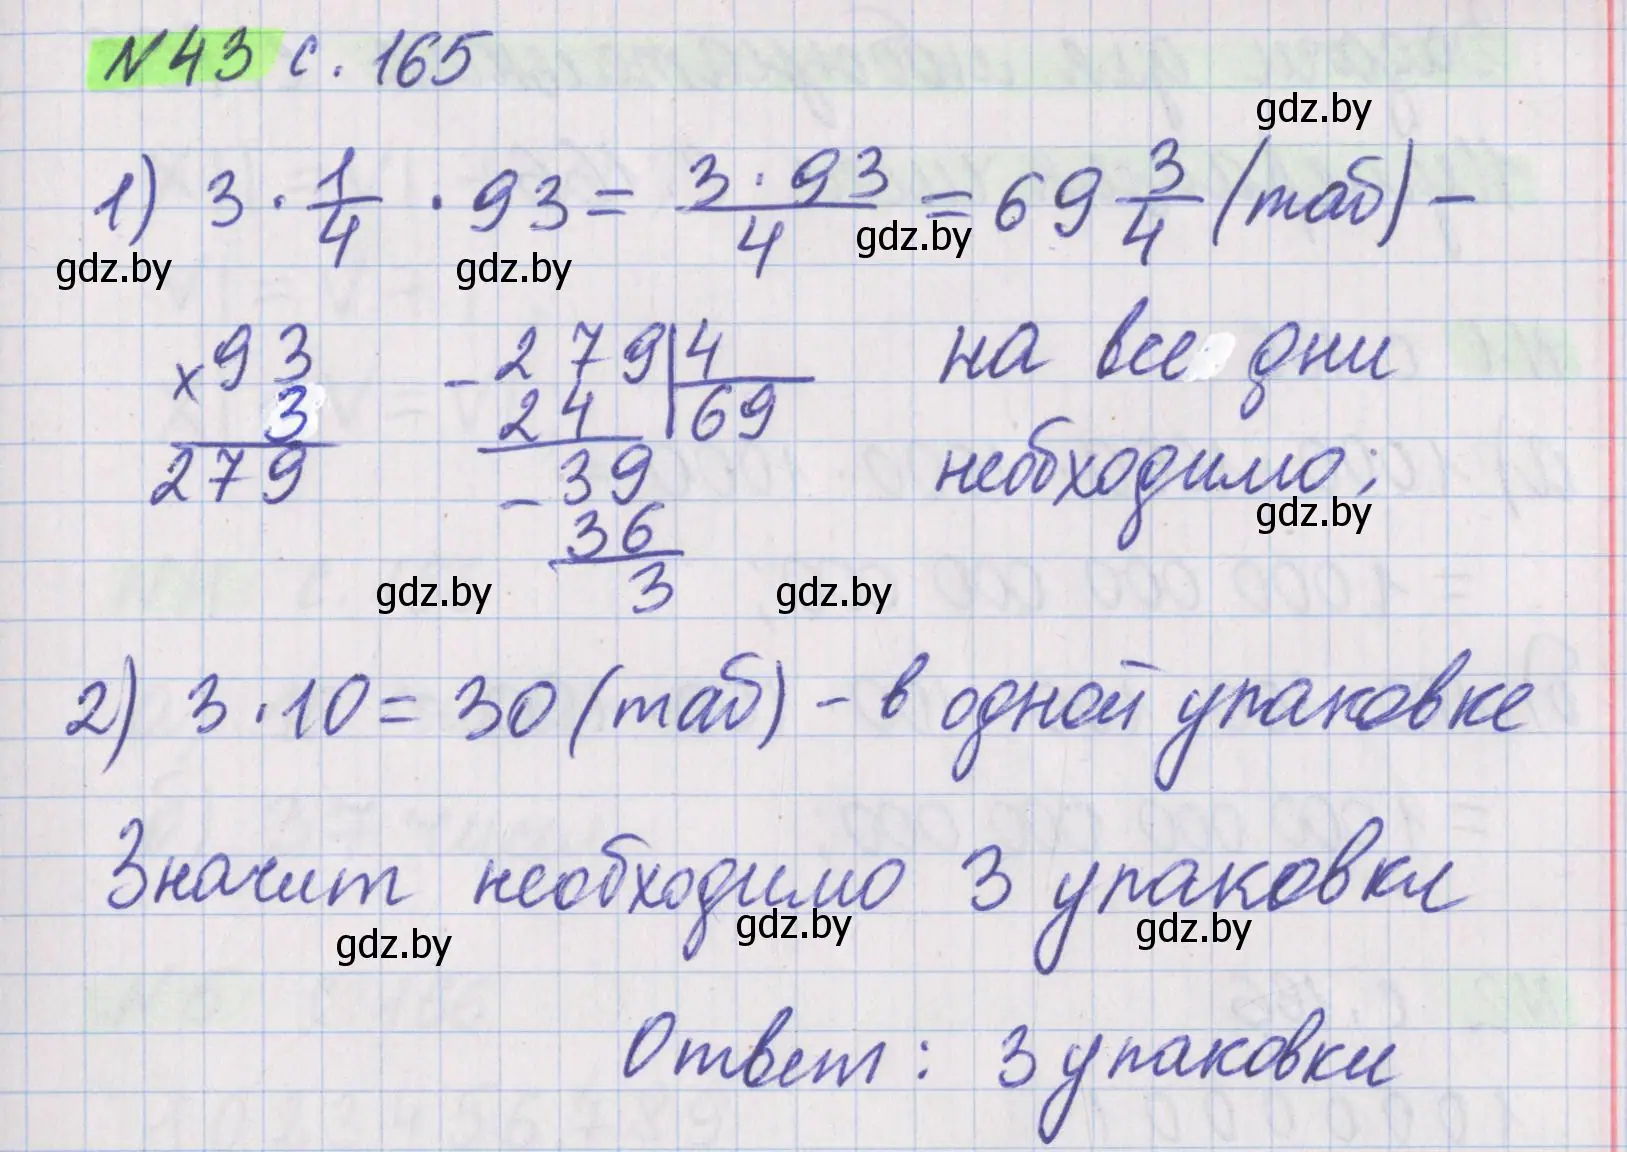 №43 с. 165
gdz.by
1) 3 · 1/4 · 93 = 3 · 93/4 = 69 3/4 (таб) –
gdz.by gdz.by gdz.by
× 93 – 279 | 4 на все дни
3 24 69
279 – 39 необходимо;
gdz.by
36
gdz.by 3 gdz.by
2) 3 · 10 = 30 (таб) – в одной упаковке
Значит необходимо 3 упаковки
gdz.by gdz.by gdz.by
Ответ: 3 упаковки